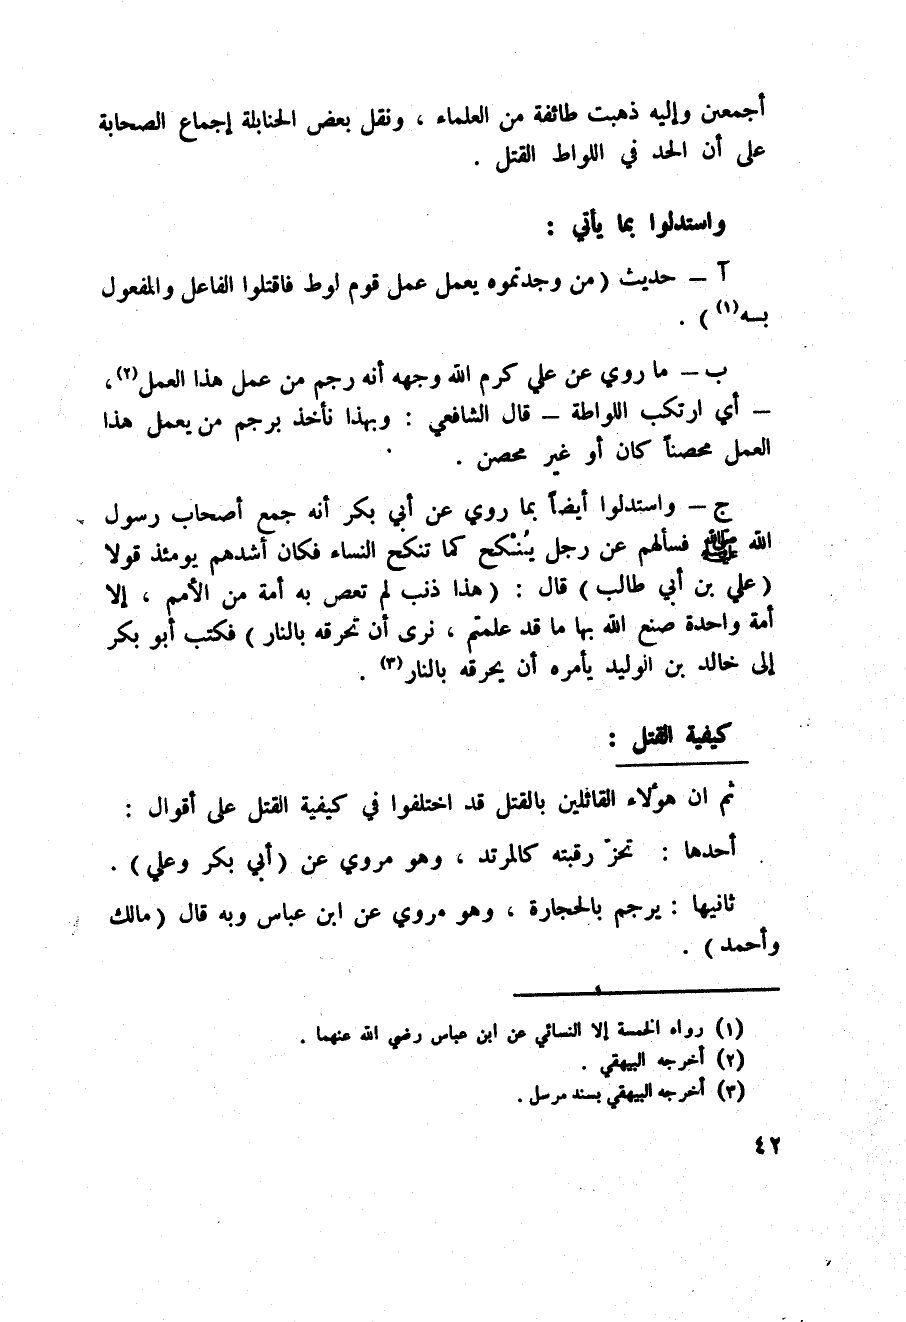 أجمعين وإليه ذهبت طائفة من العلماء ، ونقل بعض الحنابلة إجماع الصحابة
على أن الحد في اللواط القتل .
واستدلوا بما يأتي :
آ – حديث ( من وجدتموه يعمل عمل قوم لوط فاقتلوا الفاعل والمفعول
بــه(١) ) .
ب – ما روي عن علي كرم الله وجهه أنه رجم من عمل هذا العمل(٢) ،
– أي ارتكب اللواطة – قال الشافعي : وبهذا نأخذ برجم من يعمل هذا
العمل محصناً كان أو غير محصن .
ج – واستدلوا أيضاً بما روي عن أبي بكر أنه جمع أصحاب رسول
الله ﷺ فسألهم عن رجل يُنْكح كما تنكح النساء فكان أشدهم يومئذ قولا
( علي بن أبي طالب ) قال : ( هذا ذنب لم تعص به أمة من الأمم ، إلا
أمة واحدة صنع الله بها ما قد علمتم ، نرى أن تحرقه بالنار ) فكتب أبو بكر
إلى خالد بن الوليد يأمره أن يحرقه بالنار(٣) .
كيفية القتل :
ثم ان هؤلاء القائلين بالقتل قد اختلفوا في كيفية القتل على أقوال :
أحدها : تحزّ رقبته كالمرتد ، وهو مروي عن ( أبي بكر وعلي ) .
ثانيها : يرجم بالحجارة ، وهو مروي عن ابن عباس وبه قال ( مالك
وأحمد ) .
(١) رواه الخمسة إلا النسائي عن ابن عباس رضي الله عنهما .
(٢) أخرجه البيهقي .
(٣) أخرجه البيهقي بسند مرسل .
٤٢